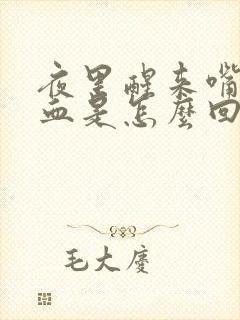 夜里醒来嘴
血是怎麼回
毛大慶